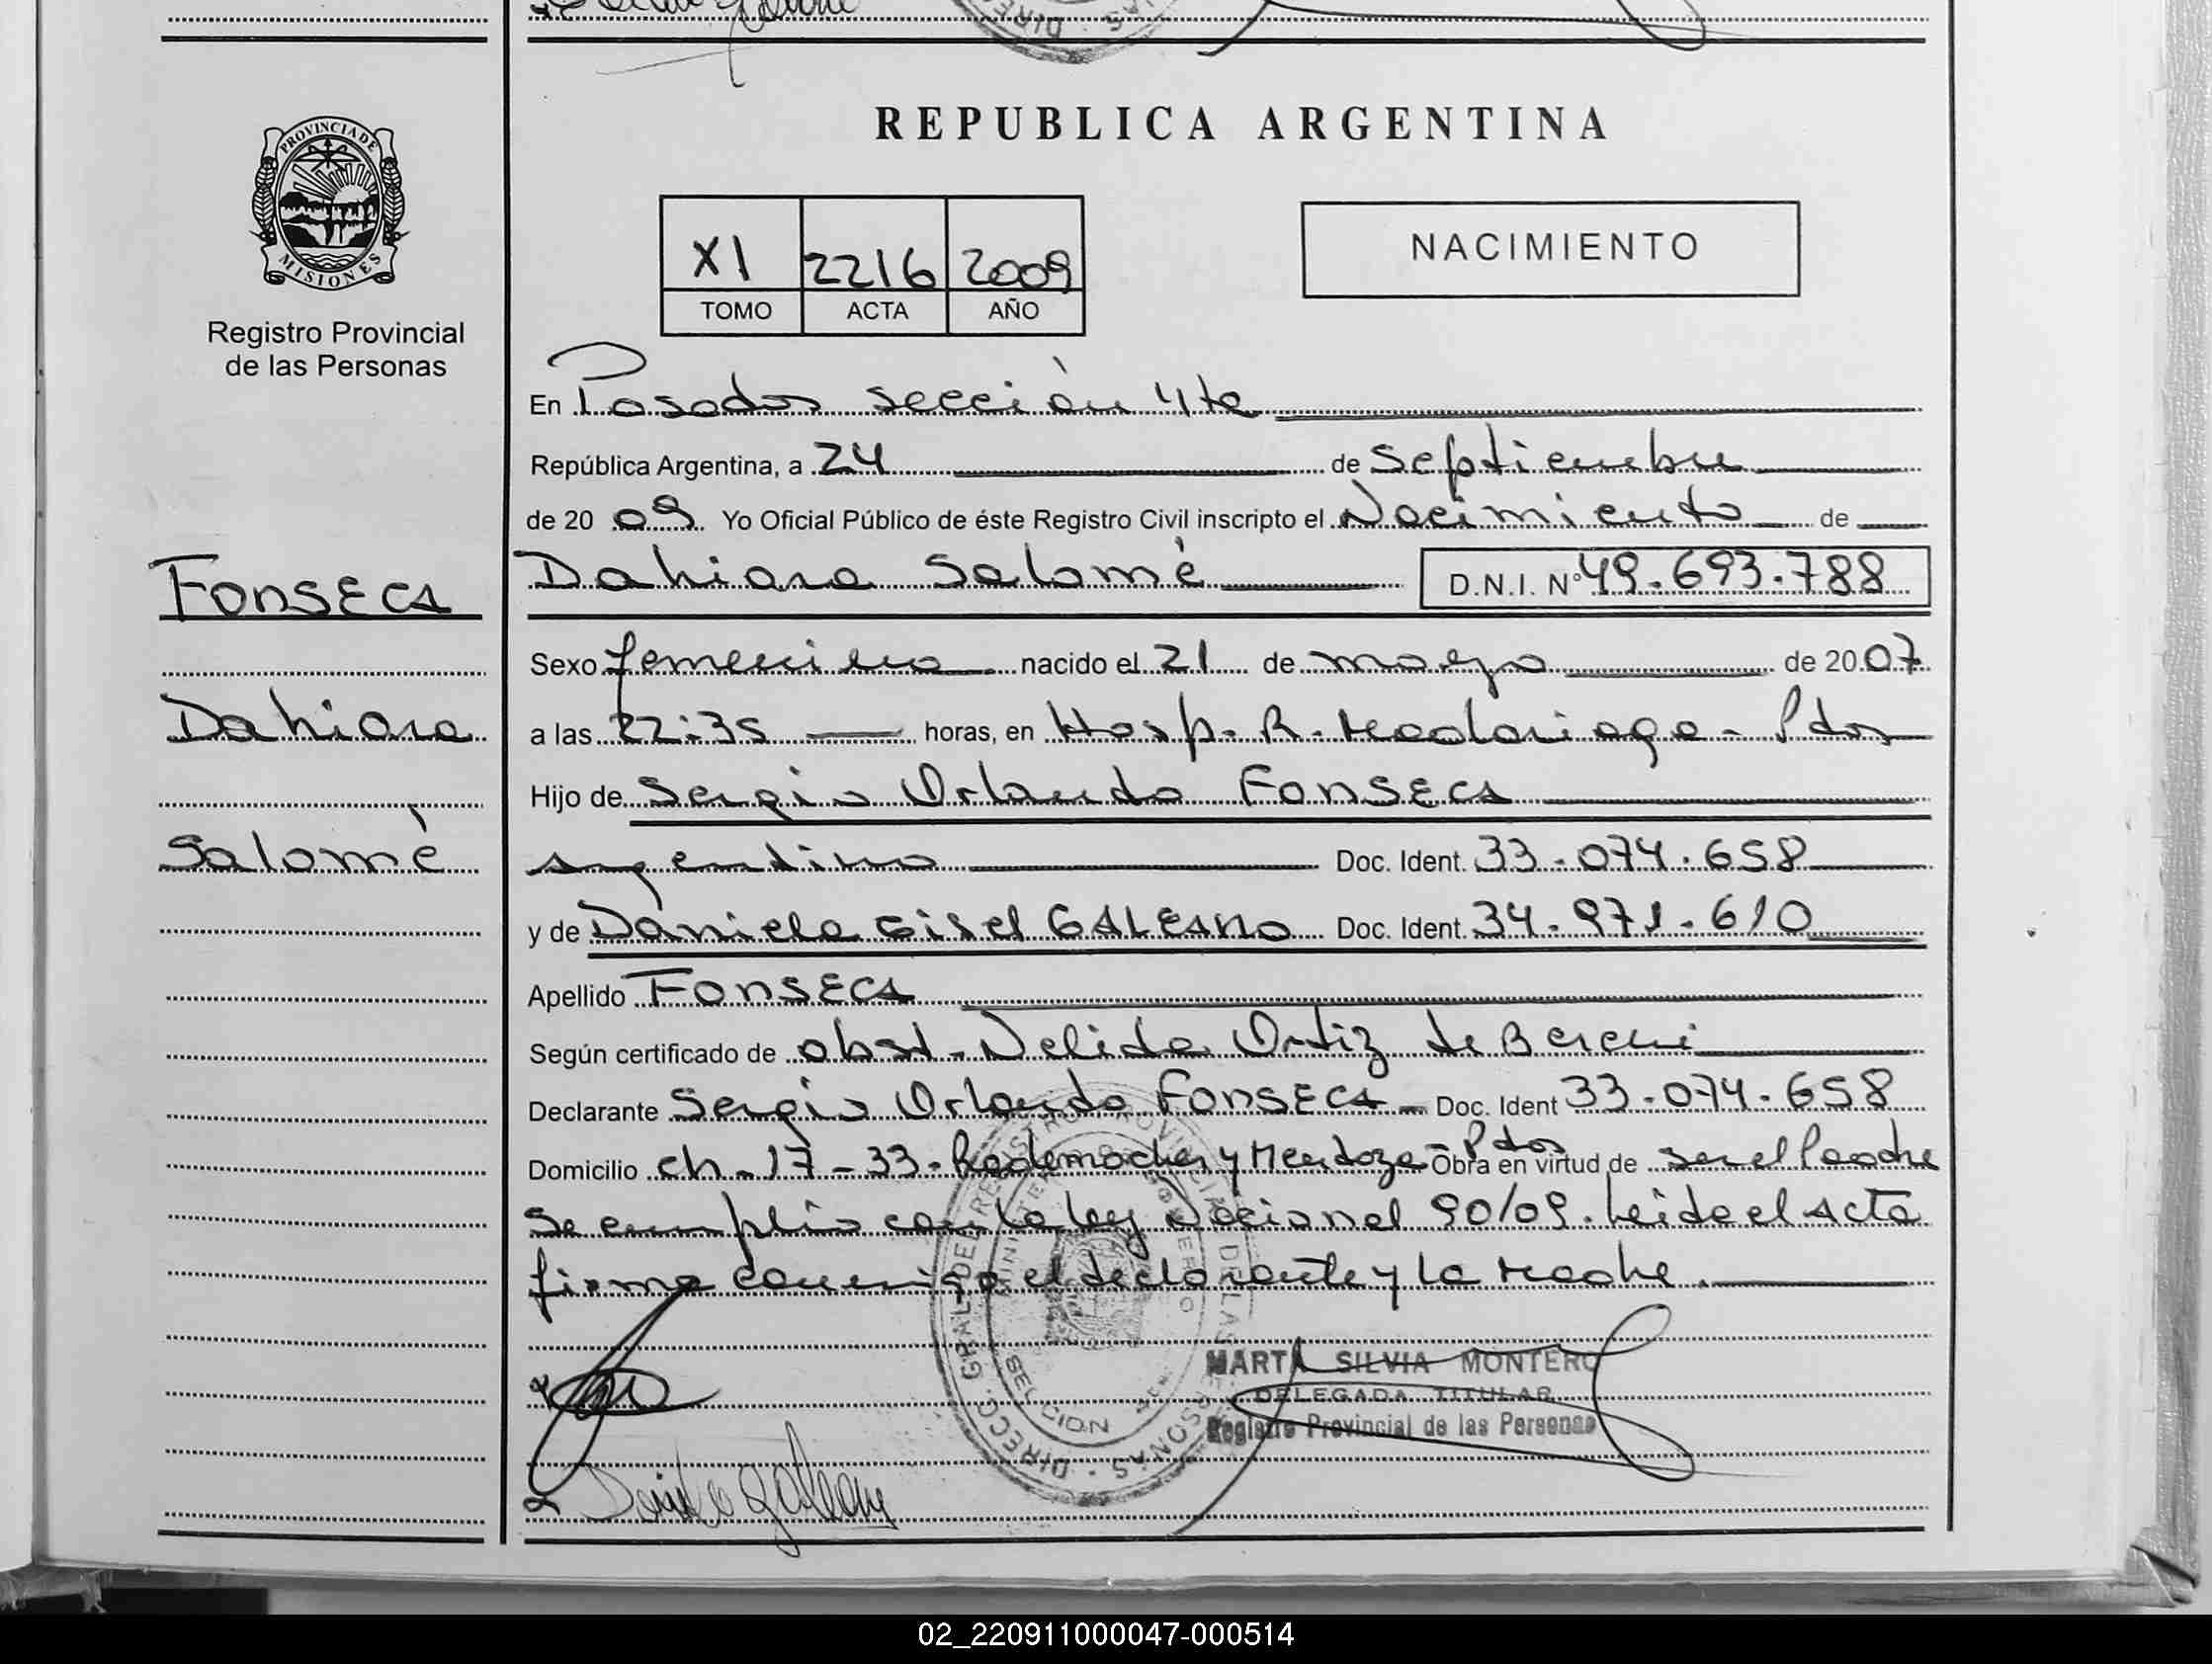 PROVINCIA DE
MISIONES
Registro Provincial
de las Personas
Fonseca
Dahiara
Salomé
REPUBLICA ARGENTINA
XI 2216 2009
TOMO ACTA AÑO
NACIMIENTO
En Posadas sección 4ta
República Argentina, a 24 de septiembre
de 20 09 Yo Oficial Público de éste Registro Civil inscripto el Nacimiento de
Dahiara Salomé D.N.I. Nº 49.693.788
Sexo femenino nacido el 21 de mayo de 20 07
a las 22:35 horas, en Hosp. R. Madariaga - Pdas
Hijo de Sergio Orlando Fonseca
argentino Doc. Ident. 33.074.658
y de Daniela Gisel GALEANO Doc. Ident. 34.971.610
Apellido Fonseca
Según certificado de obst. Nelida Ortiz de
Declarante Sergio Orlando Fonseca - Doc. Ident 33.074.658
Domicilio ch - 17 - 33 - Rademacher y Mendoza - Pdas Obra en virtud de ser el Padre
se cumplió con la ley Nacional 90/09. Leida el Acta
firma conmigo el declarante y la Madre.
MARTA SILVIA MONTERO
DELEGADA TITULAR
Registro Provincial de las Personas
DIRECC. GRAL. DEL REGISTRO PROVINCIAL DE LAS PERSONAS
Daniela Galeano
02_220911000047-000514